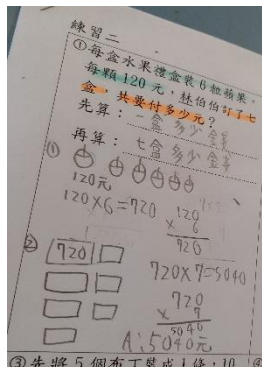 練習二
①每盒水果禮盒裝6粒蘋果，
每顆120元，林伯伯訂了七
盒，共要付多少元？
先算：一盒多少金錢
再算：七盒多少金錢
①
120元
120×6=720
120
× 6
720
②
720
720×7=5040
720
× 7
5040
A：5040元
③先將5個布丁裝成1條，10
④